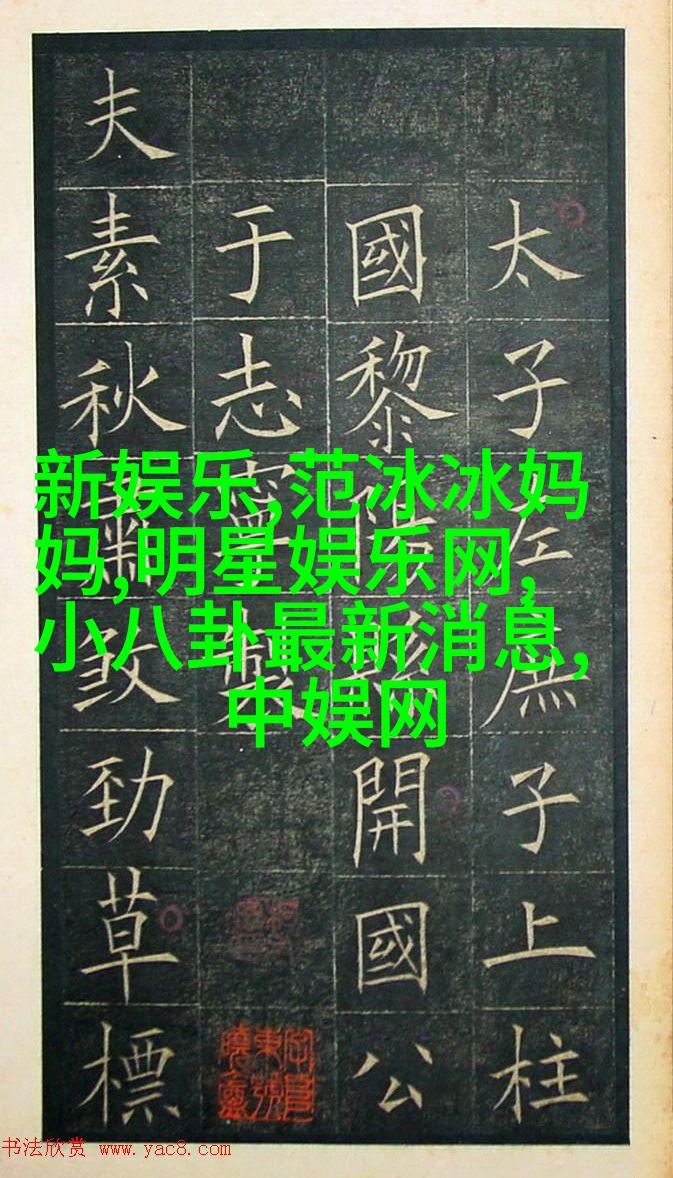 太子左庶子上柱
國黎陽縣開國公
于志寧製
夫素秋肅煞勁草標
新娱乐,范冰冰妈
妈,明星娱乐网,
小八卦最新消息,
中娱网
书法欣赏 www.yac8.com